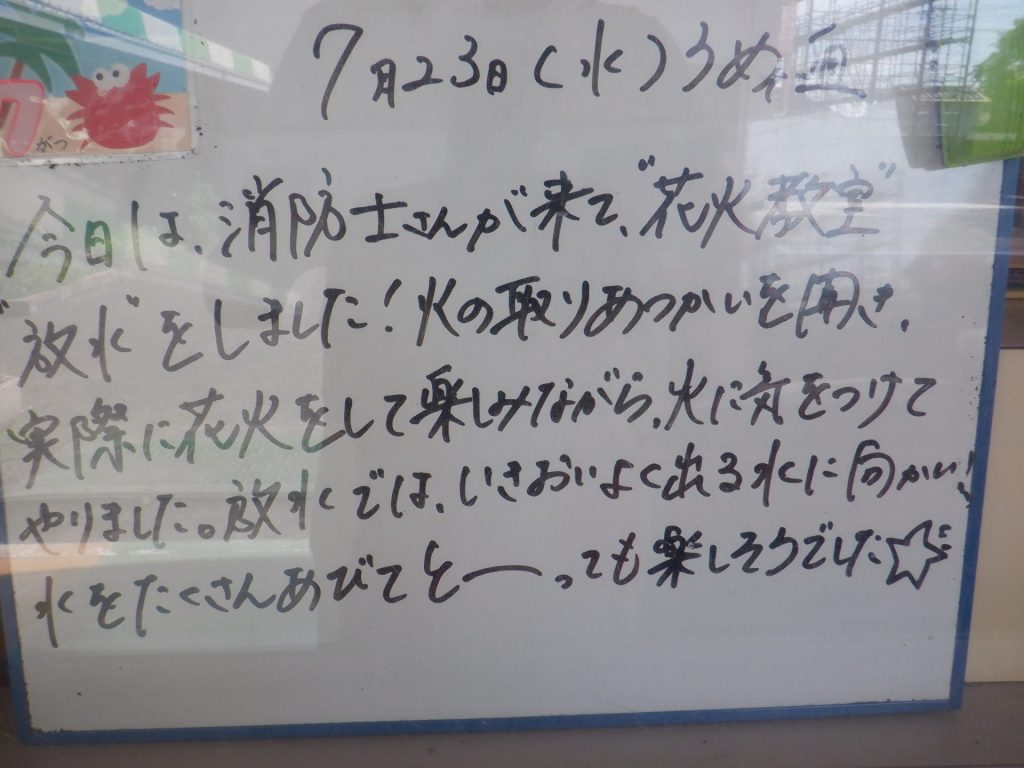 7がつ
7月23日(水)うめ組
今日は、消防士さんが来て、"花火教室"
"放水"をしました!火の取りあつかいを聞き、
実際に花火をして楽しみながら、火に気をつけて
やりました。放水では、いきおいよく出る水に向かい!
水をたくさんあびてと――っても楽しそうでした☆